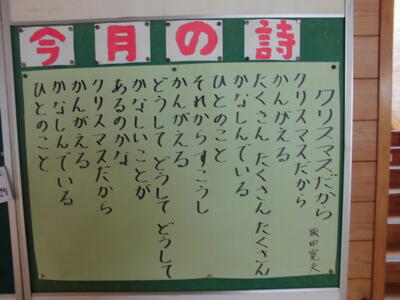 今月の詩
クリスマスだから
阪田寛夫
クリスマスだから
かんがえる
たくさん たくさん たくさん
かなしんでいる
ひとのこと
それからすこうし
かんがえる
どうして どうして どうして
かなしいことが
あるのかな
クリスマスだから
かんがえる
かなしんでいる
ひとのこと